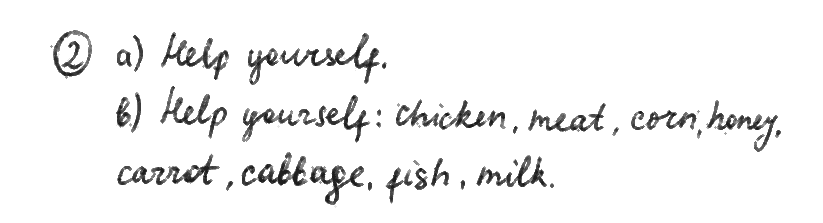 ② a) Help yourself.
b) Help yourself: chicken, meat, corn, honey,
carrot, cabbage, fish, milk.